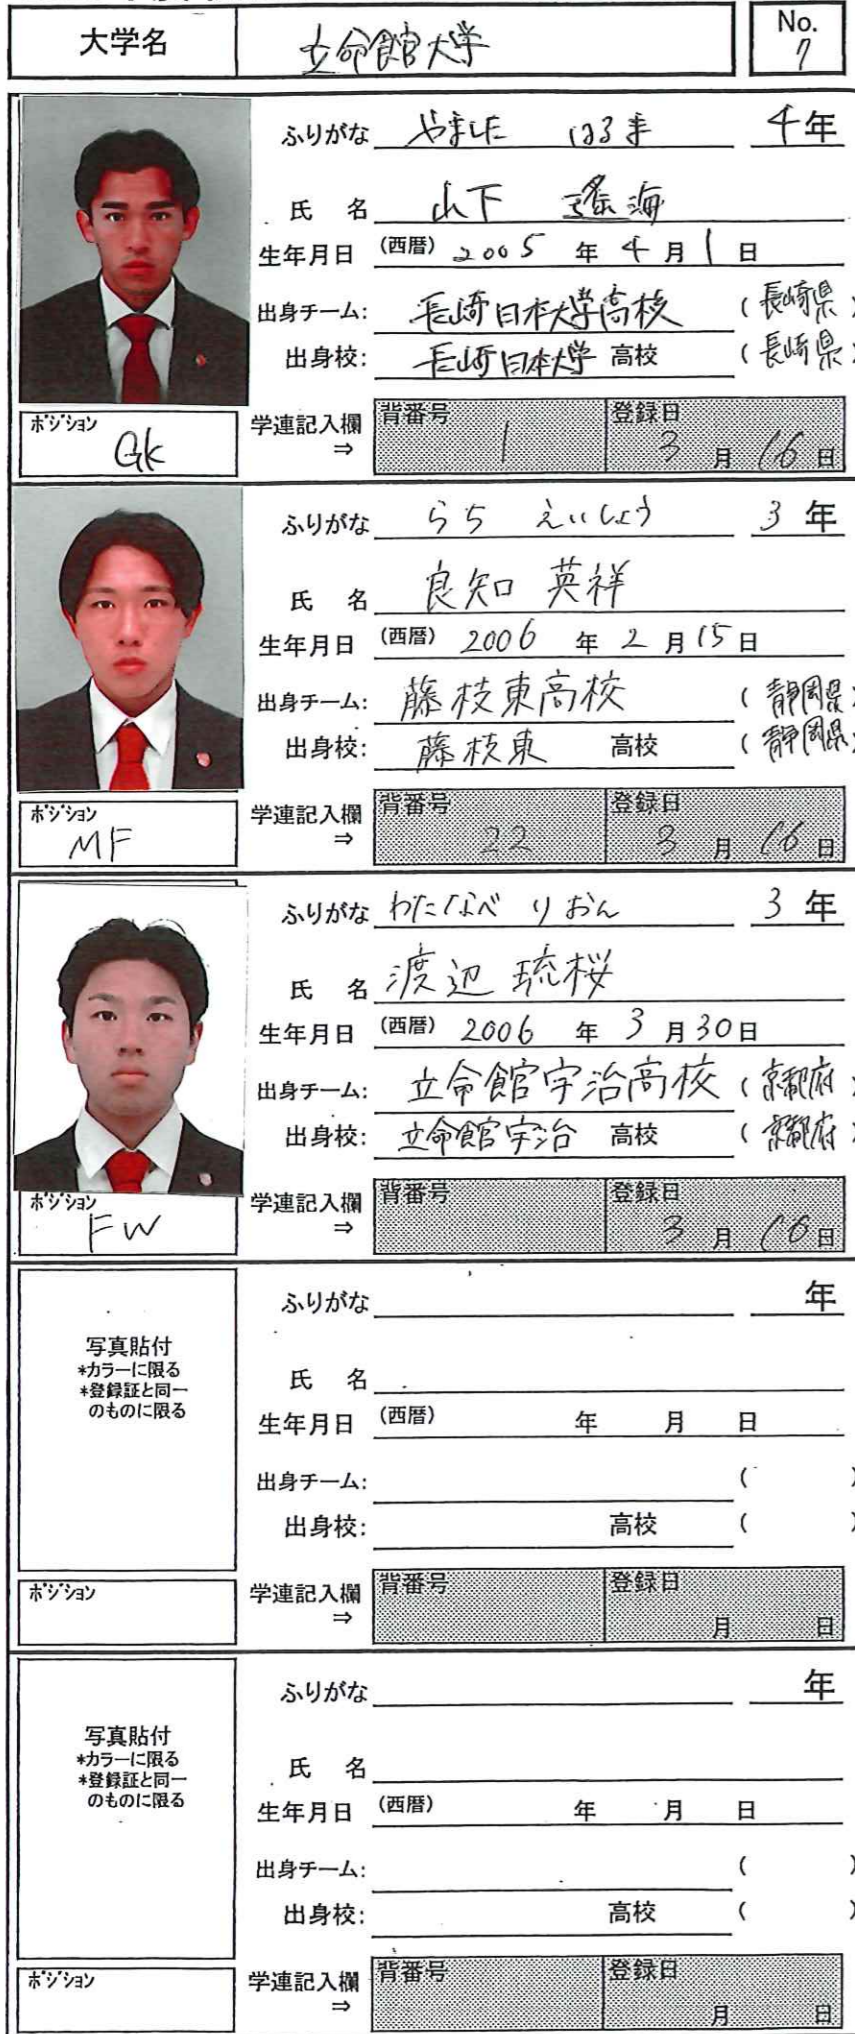 大学名 立命館大学 No. 7
ふりがな やました はるま 4年
氏 名 山下 遥海
生年月日 (西暦) 2005 年 4 月 1 日
出身チーム: 長崎日本大学高校 (長崎県)
出身校: 長崎日本大学 高校 (長崎県)
ポジション GK 学連記入欄 ⇒ 背番号 1 登録日 3 月 16 日
ふりがな らち えいしょう 3 年
氏 名 良知 英祥
生年月日 (西暦) 2006 年 2 月 15 日
出身チーム: 藤枝東高校 (静岡県)
出身校: 藤枝東 高校 (静岡県)
ポジション MF 学連記入欄 ⇒ 背番号 22 登録日 3 月 16 日
ふりがな わたなべ りおん 3 年
氏 名 渡辺 琉桜
生年月日 (西暦) 2006 年 3 月 30 日
出身チーム: 立命館宇治高校 (京都府)
出身校: 立命館宇治 高校 (京都府)
ポジション FW 学連記入欄 ⇒ 背番号 登録日 3 月 16 日
ふりがな 年
写真貼付
*カラーに限る
*登録証と同一
のものに限る
氏 名
生年月日 (西暦) 年 月 日
出身チーム: ( )
出身校: 高校 ( )
ポジション 学連記入欄 ⇒ 背番号 登録日 月 日
ふりがな 年
写真貼付
*カラーに限る
*登録証と同一
のものに限る
氏 名
生年月日 (西暦) 年 月 日
出身チーム: ( )
出身校: 高校 ( )
ポジション 学連記入欄 ⇒ 背番号 登録日 月 日